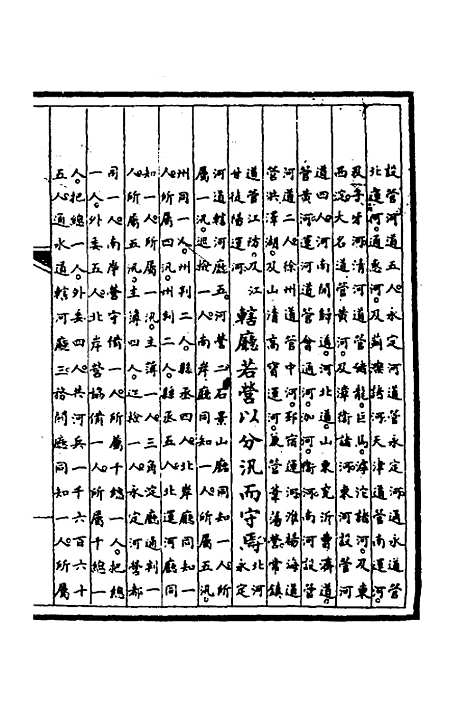 設管河道五人永定河道管永定河通永道管
北運河通惠河及薊榆諸河天津道管南運河
及子牙河清河道管豬龍巨馬滹沱諸河及東
西淀大名道管黃河及漳衛諸河東河設管河
道四人河南開歸道河北道山東兗沂曹濟道
管黃河運河道管會通河泇河衛河南河設管
河道二人徐州道管中河邳宿運河淮揚海道
管洪澤湖及山清高寶運河兼管葦蕩營常鎮
道管江防及江
甘徒陽運河
轄廳若營以分汛而守焉
北河
永定
河道轄河廳五河營二石景山廳同知一人所
屬一汛巡檢一人南岸廳同知一人所屬五汛
州同一人州判二人縣丞四人北岸廳同知一
人所屬四汛州判二人縣丞五人北運河廳同
知一人所屬一汛主簿一人三角淀廳通判一
人所屬五汛主簿四人巡檢一人永定河營都
司一人南岸營守備一人所屬千總一人把總
一人外委五人北岸營協備一人所屬千總一
人把總一人外委四人共河兵一千六百六十
五人通永道轄河廳三務關廳同知一人所屬